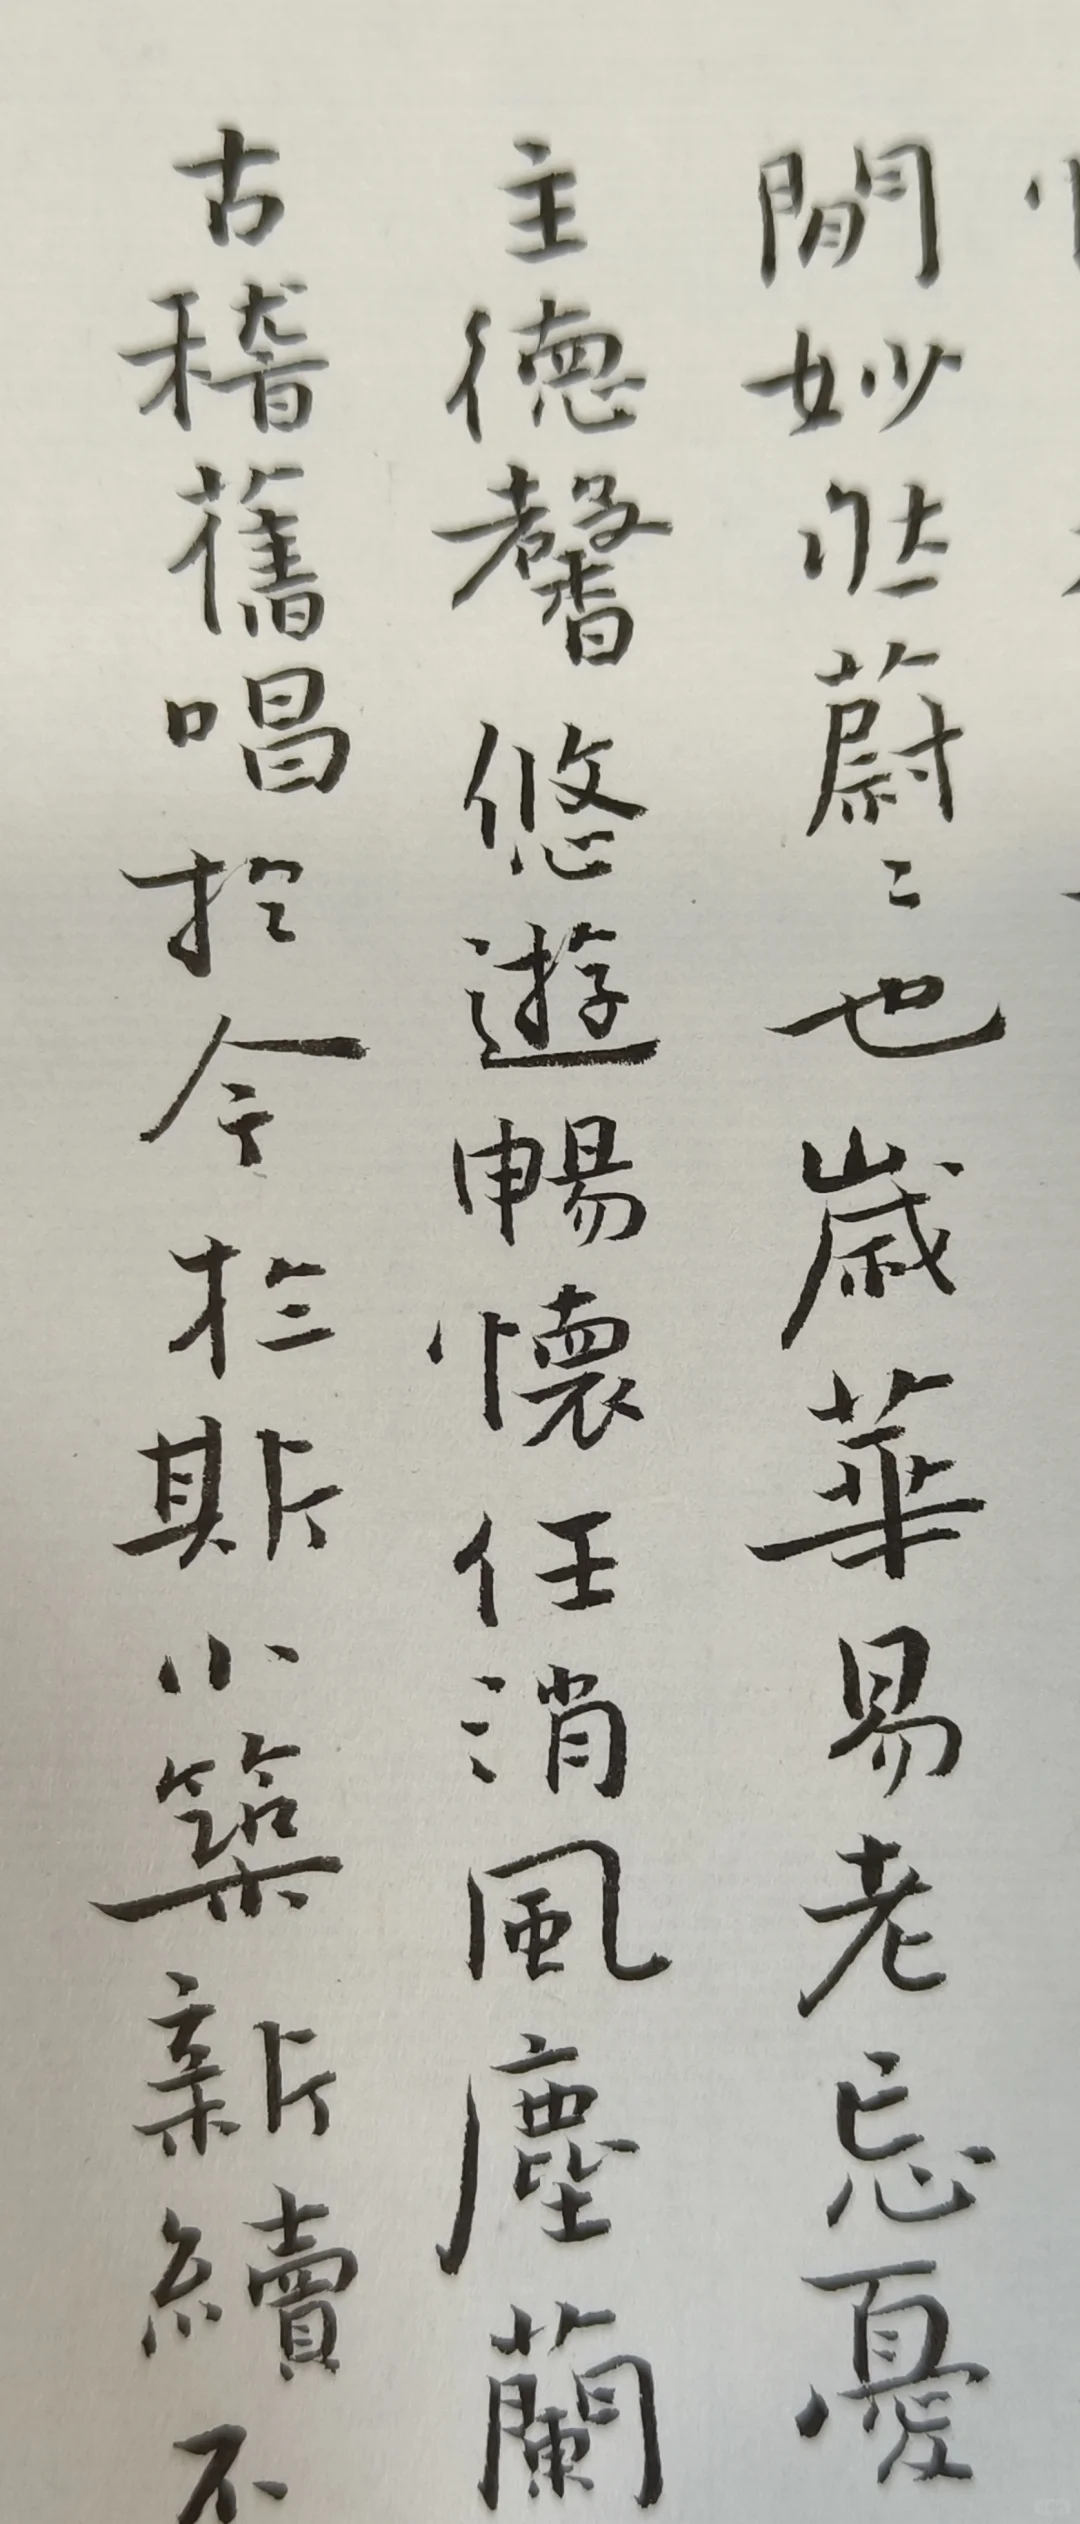 閒妙然蔚〻也歲華易老忘憂
主德馨悠遊暢懷任消風塵蘭
古稽舊唱於今於斯小築新續不